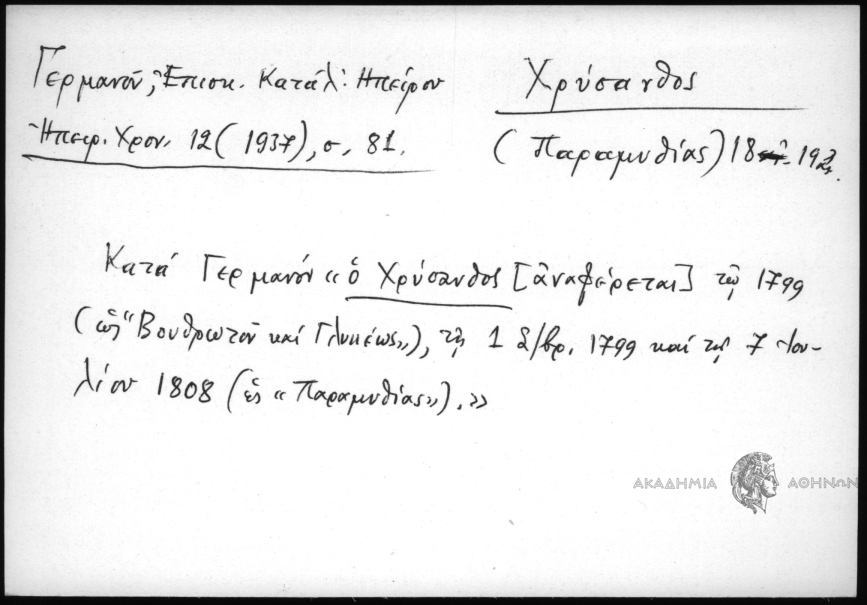 Γερμανοῦ, Ἐπισκ. Κατάλ. Ἠπείρου
Ἠπειρ. Χρον. 12 (1937), σ. 81.
Χρύσανθος
(Παραμυθίας) 18 - 19
Κατά Γερμανόν «ὁ Χρύσανθος [ἀναφέρεται] τῷ 1799
(ὡς "Βουθρωτοῦ καί Γλυκέως»), τῇ 1 8/βρ. 1799 καί τῇ 7 Ἰου-
λίου 1808 (ὡς «Παραμυθίας»).»
ΑΚΑΔΗΜΙΑ ΑΘΗΝΩΝ